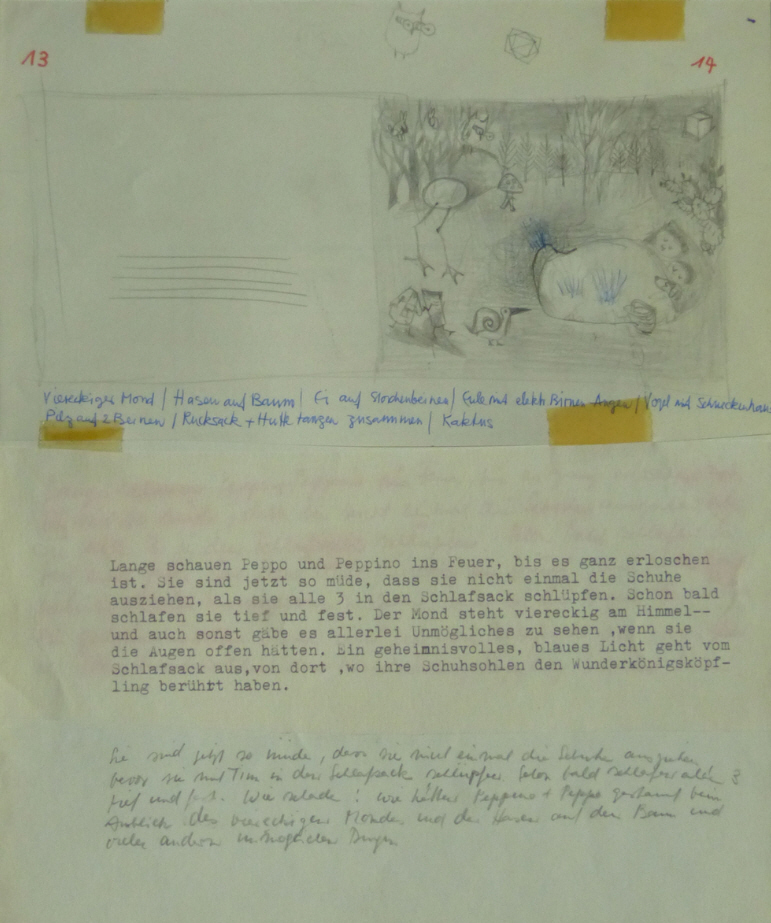 13
14
Viereckiger Mond / Hasen auf Baum / Ei auf Storchenbeinen / Eule mit elektr Birnen Augen / Vogel mit Schneckenhaus
Pilz auf 2 Beinen / Rucksack + Hutte tanzen zusammen / Kaktus
Lange schauen Peppo und Peppino ins Feuer, bis es ganz erloschen
ist. Sie sind jetzt so müde, dass sie nicht einmal die Schuhe
ausziehen, als sie alle 3 in den Schlafsack schlüpfen. Schon bald
schlafen sie tief und fest. Der Mond steht viereckig am Himmel--
und auch sonst gäbe es allerlei Unmögliches zu sehen ,wenn sie
die Augen offen hätten. Ein geheimnisvolles, blaues Licht geht vom
Schlafsack aus,von dort ,wo ihre Schuhsohlen den Wunderkönigsköpf-
ling berührt haben.
Sie sind jetzt so müde, dass sie nicht einmal die Schuhe ausziehen
bevor sie mit Tim in den Schlafsack schlüpfen. Schon bald schlafen alle 3
tief und fest. Wie schade! Wie hätten Peppino + Peppo gestaunt beim
Anblick des viereckigen Mondes und der Hasen auf dem Baum und
vieler anderer unmöglichen Dingen